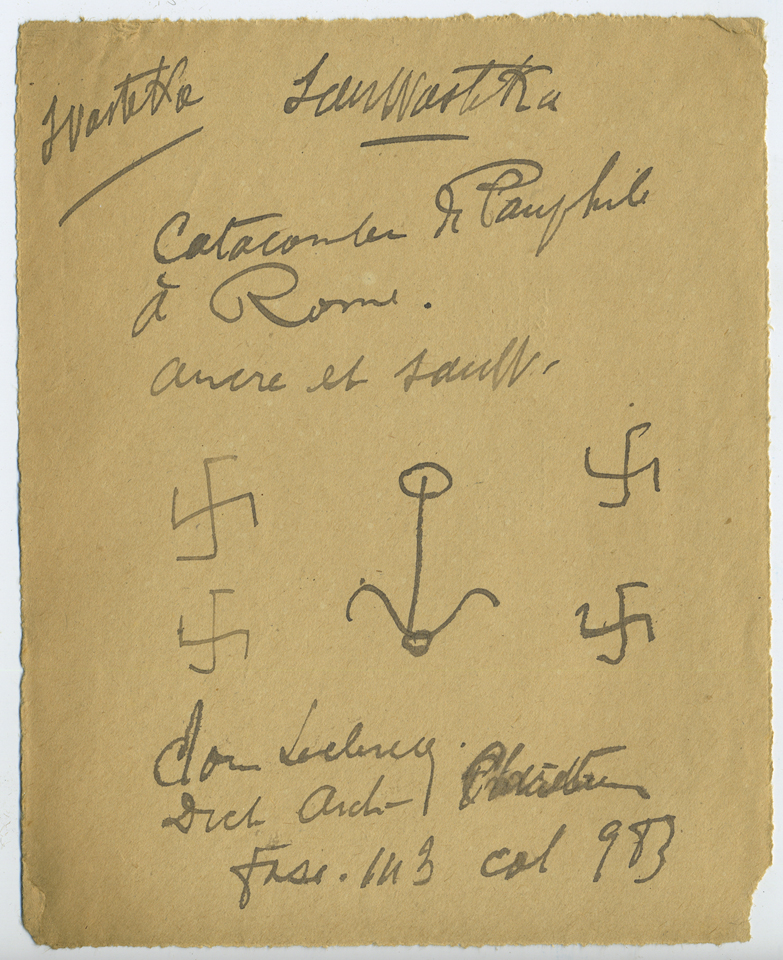 Swastika SauWastika
Catacombe de Pamphile
à Rome.
ancre et sauW.
dom Leclercq.
Dict Arch Chrétien
Fasc. 113 col 983